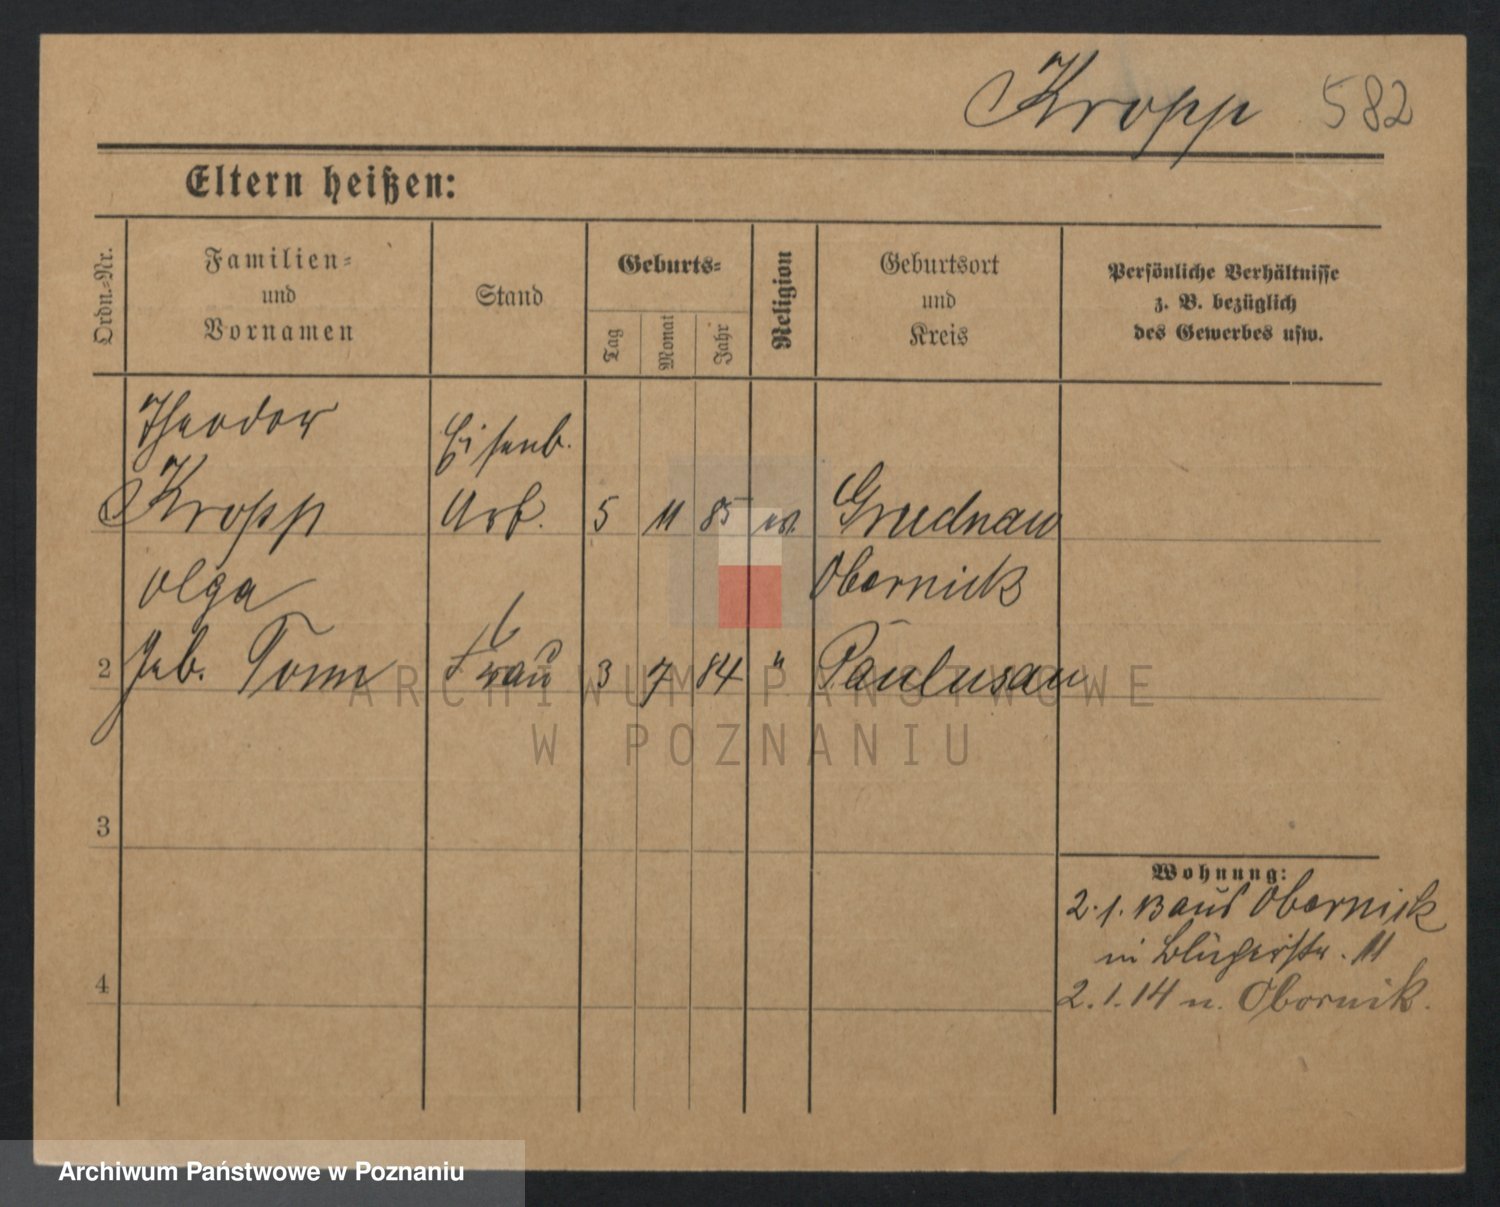 Kropp 582
Eltern heißen:
Ordn.-Nr.
Familien-
und
Vornamen
Stand
Geburts-
Tag
Monat
Jahr
Religion
Geburtsort
und
Kreis
Persönliche Verhältnisse
z. B. bezüglich
des Gewerbes usw.
Theodor
Kropp
Eisenb.
Arb.
5 11 85 ev.
Obornick
Olga
2 geb. Tomm
Frau
3 7 84 "
Wohnung:
2.1.13 aus Obornick
in 11
2.1.14 n. Obornik.
ARCHIWUM PAŃSTWOWE
W POZNANIU
Archiwum Państwowe w Poznaniu
3
4